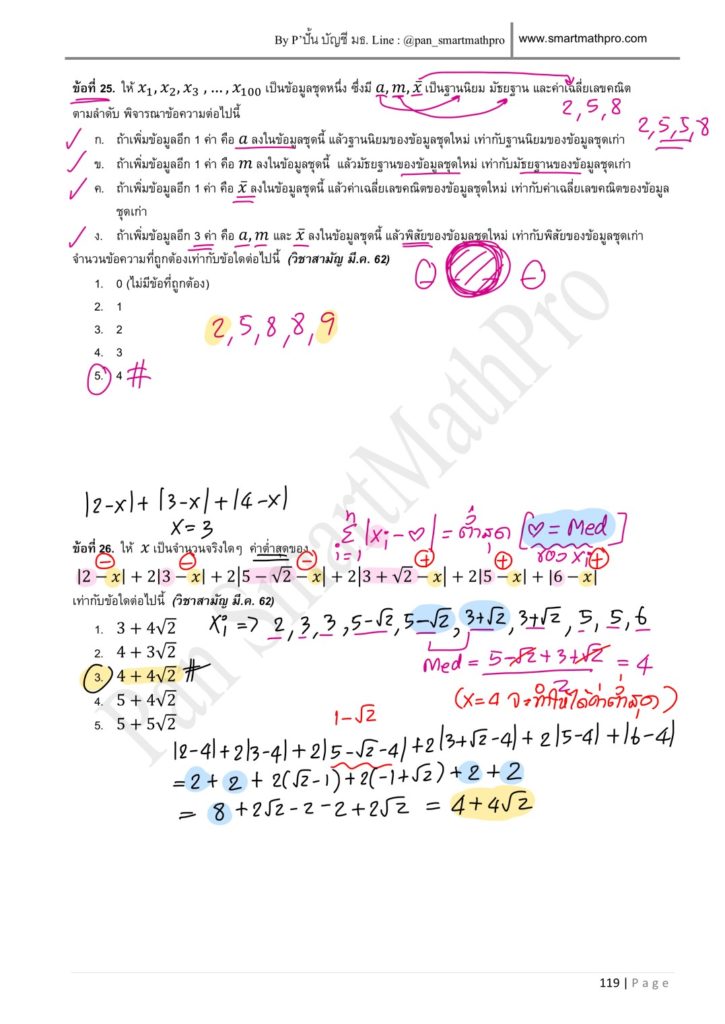 By P'ปั้น บัญชี มธ. Line : @pan_smartmathpro www.smartmathpro.com
ข้อที่ 25. ให้ x₁, x₂, x₃ , … , x₁₀₀ เป็นข้อมูลชุดหนึ่ง ซึ่งมี a, m, x̄ เป็นฐานนิยม มัธยฐาน และค่าเฉลี่ยเลขคณิต
ตามลำดับ พิจารณาข้อความต่อไปนี้
2, 5, 8
2, 5, 5, 8
ก. ถ้าเพิ่มข้อมูลอีก 1 ค่า คือ a ลงในข้อมูลชุดนี้ แล้วฐานนิยมของข้อมูลชุดใหม่ เท่ากับฐานนิยมของข้อมูลชุดเก่า
ข. ถ้าเพิ่มข้อมูลอีก 1 ค่า คือ m ลงในข้อมูลชุดนี้ แล้วมัธยฐานของข้อมูลชุดใหม่ เท่ากับมัธยฐานของข้อมูลชุดเก่า
ค. ถ้าเพิ่มข้อมูลอีก 1 ค่า คือ x̄ ลงในข้อมูลชุดนี้ แล้วค่าเฉลี่ยเลขคณิตของข้อมูลชุดใหม่ เท่ากับค่าเฉลี่ยเลขคณิตของข้อมูล
ชุดเก่า
ง. ถ้าเพิ่มข้อมูลอีก 3 ค่า คือ a, m และ x̄ ลงในข้อมูลชุดนี้ แล้วพิสัยของข้อมูลชุดใหม่ เท่ากับพิสัยของข้อมูลชุดเก่า
จำนวนข้อความที่ถูกต้องเท่ากับข้อใดต่อไปนี้ (วิชาสามัญ มี.ค. 62)
1. 0 (ไม่มีข้อที่ถูกต้อง)
2. 1
3. 2
4. 3
5. 4 #
2, 5, 8, 8, 9
|2-x| + |3-x| + |4-x|
x = 3
n Σ i=1 |xᵢ - ♡| = ต่ำสุด [♡ = Med]
ของ xᵢ
ข้อที่ 26. ให้ x เป็นจำนวนจริงใดๆ ค่าต่ำสุดของ
|2 − x| + 2|3 − x| + 2|5 − √2 − x| + 2|3 + √2 − x| + 2|5 − x| + |6 − x|
เท่ากับข้อใดต่อไปนี้ (วิชาสามัญ มี.ค. 62)
1. 3 + 4√2
2. 4 + 3√2
3. 4 + 4√2 #
4. 5 + 4√2
5. 5 + 5√2
xᵢ => 2, 3, 3, 5-√2, 5-√2, 3+√2, 3+√2, 5, 5, 6
Med = (5-√2+3+√2)/2 = 4
(x=4 จะทำให้ได้ค่าต่ำสุด)
1-√2
|2-4| + 2|3-4| + 2|5-√2-4| + 2|3+√2-4| + 2|5-4| + |6-4|
= 2 + 2 + 2(√2-1) + 2(-1+√2) + 2 + 2
= 8 + 2√2 - 2 - 2 + 2√2 = 4+4√2
Pan SmartMathPro
119 | Page